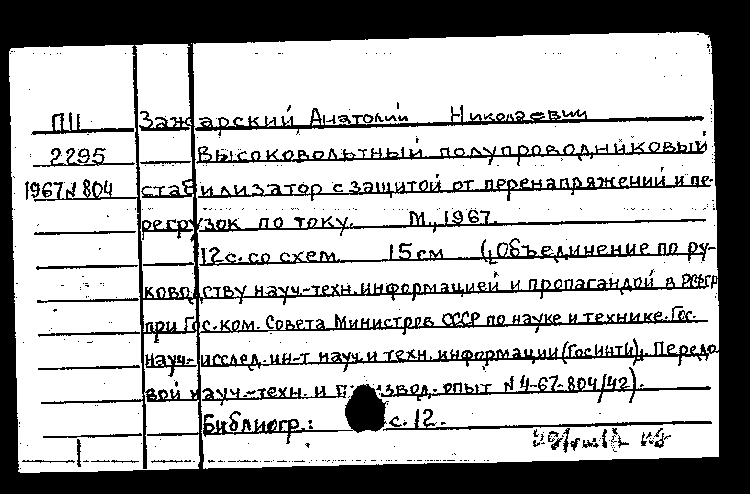 ПII Зажарский, Анатолий Николаевич
2295 Высоковольтный полупроводниковый
1967 N 804 стабилизатор с защитой от перенапряжений и пе-
регрузок по току. М., 1967.
12 с. со схем. 15 см (Объединение по ру-
ководству науч-техн. информацией и пропагандой в РСФСР
при Гос. ком. Совета Министров СССР по науке и технике. Гос.
науч-исслед. ин-т науч и техн. информации (ГосИНТИ), Передо
вой науч.-техн. и производ. опыт N 4-67-804/42).
Библиогр.: с. 12.